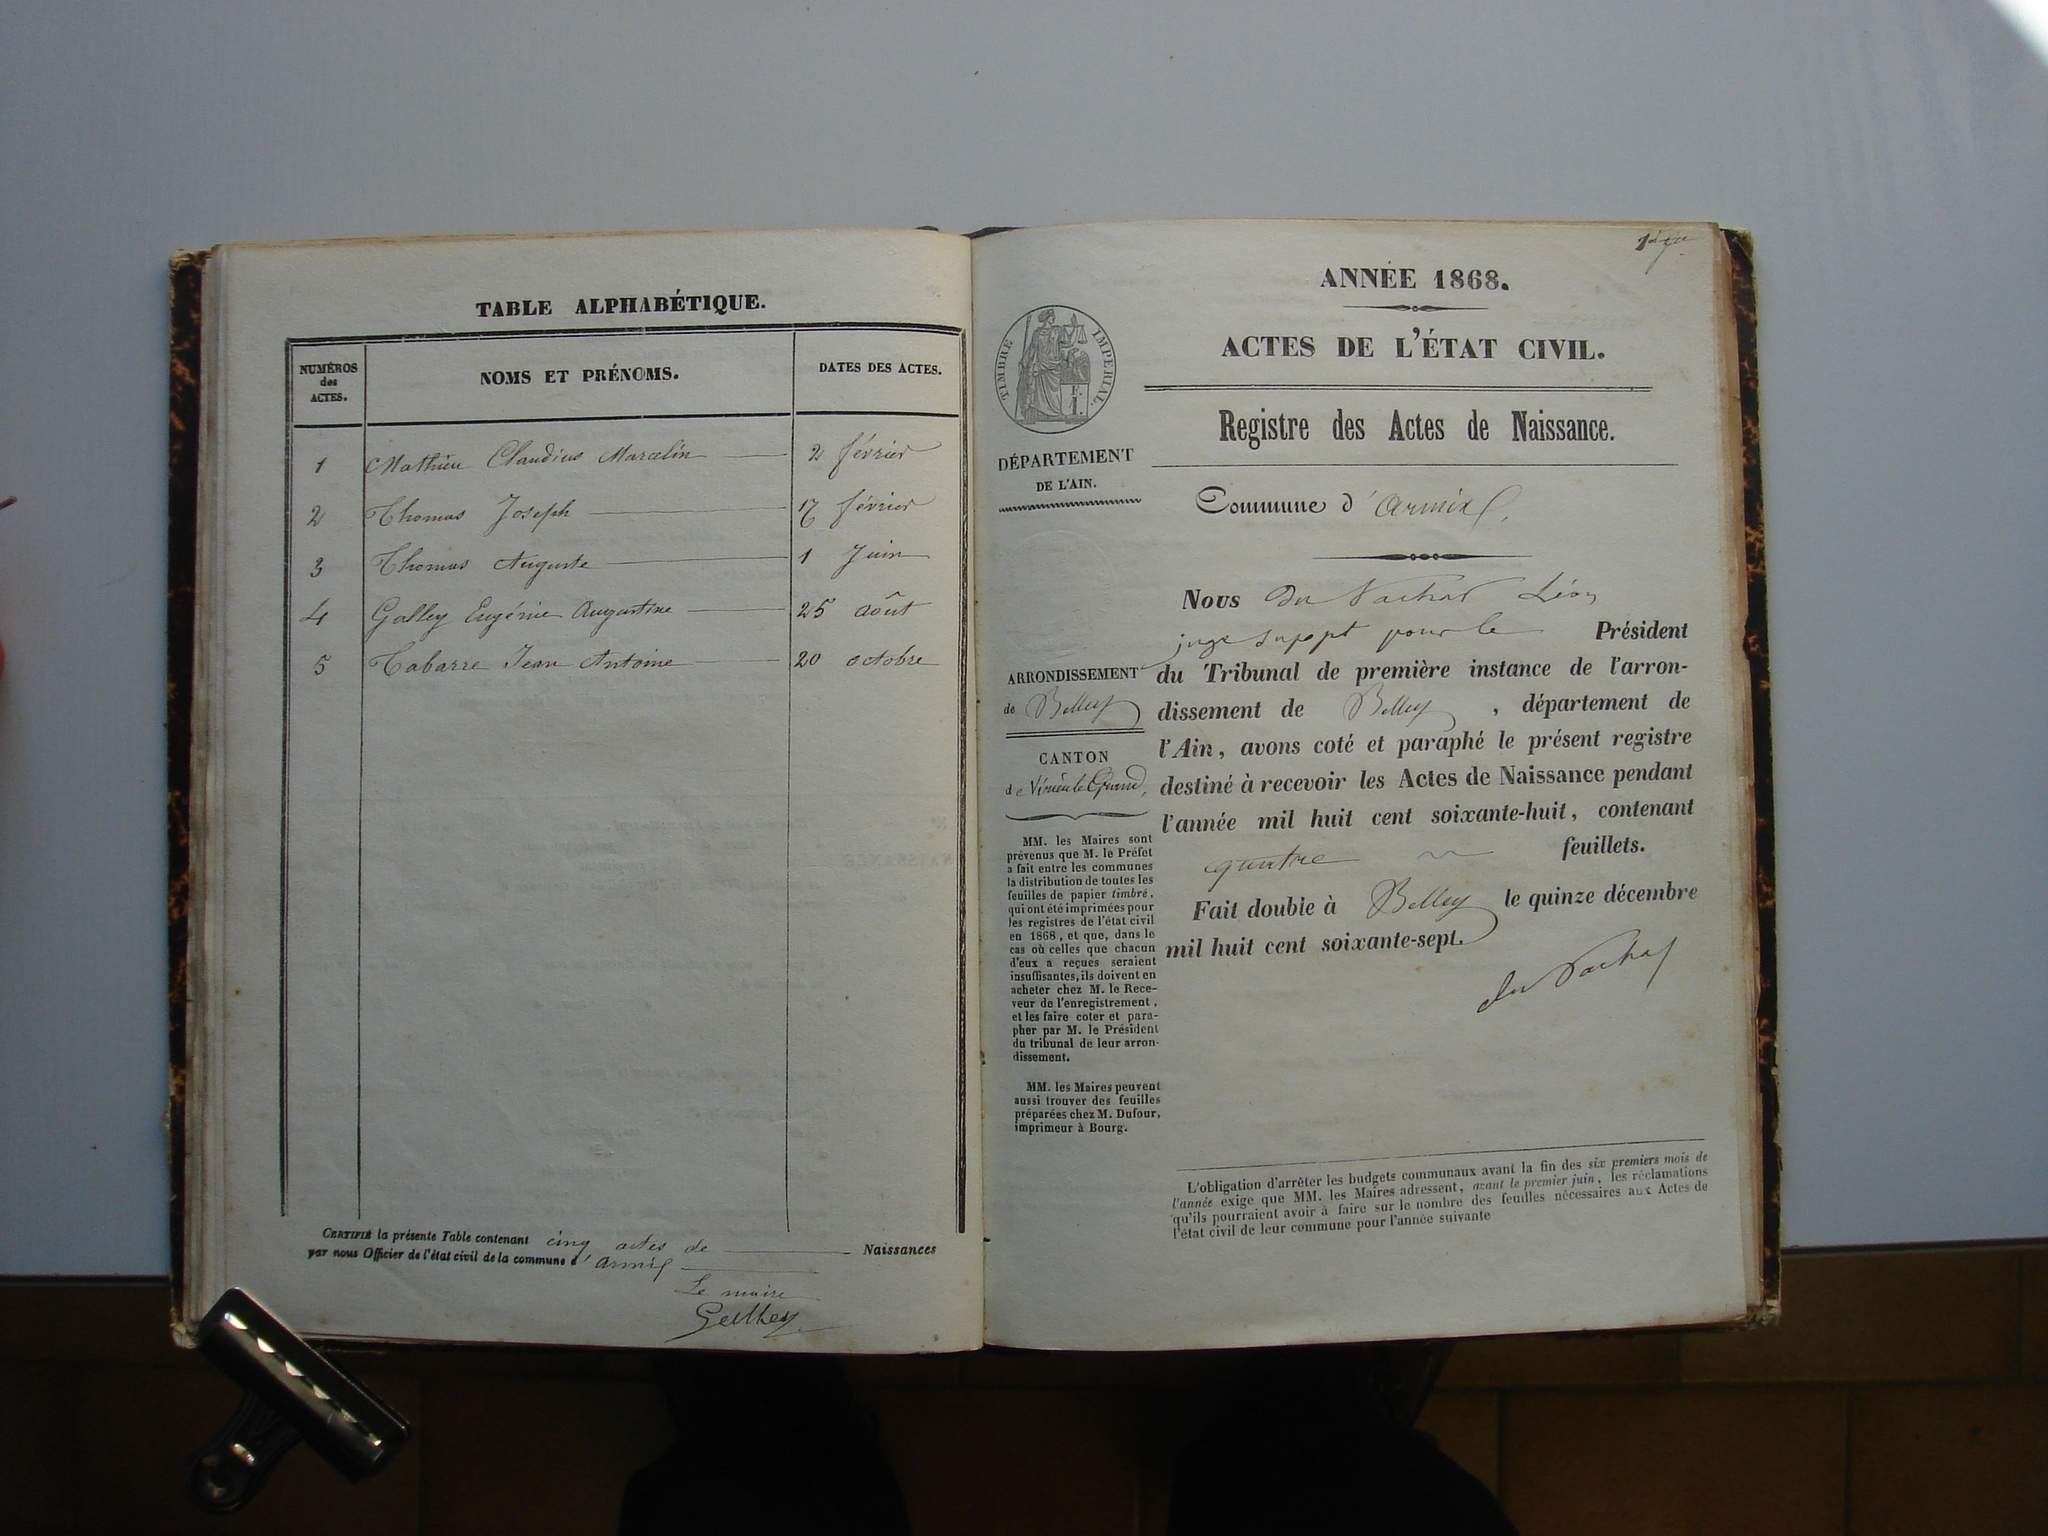 TABLE ALPHABÉTIQUE.
NUMÉROS
des
ACTES.
NOMS ET PRÉNOMS.
DATES DES ACTES.
1 Mathieu Claudius Marcelin 2 février
2 Thomas Joseph 17 février
3 Thomas Auguste 1 Juin
4 Galley Eugénie Augustine 25 août
5 Tabarre Jean Antoine 20 octobre
CERTIFIÉ la présente Table contenant cinq actes de Naissances
par nous Officier de l'état civil de la commune d'armix
Le maire
ANNÉE 1868.
ACTES DE L'ÉTAT CIVIL.
Registre des Actes de Naissance.
TIMBRE IMPÉRIAL.
DÉPARTEMENT
DE L'AIN.
ARRONDISSEMENT
de Belley
CANTON
de Virieu le Grand,
MM. les Maires sont
prévenus que M. le Préfet
a fait entre les communes
la distribution de toutes les
feuilles de papier timbré,
qui ont été imprimées pour
les registres de l'état civil
en 1868, et que, dans le
cas où celles que chacun
d'eux a reçues seraient
insuffisantes, ils doivent en
acheter chez M. le Rece-
veur de l'enregistrement,
et les faire coter et para-
pher par M. le Président
du tribunal de leur arron-
dissement.
MM. les Maires peuvent
aussi trouver des feuilles
préparées chez M. Dufour,
imprimeur à Bourg.
Commune d'armix
Nous du Vachat Léon
juge suppt pour le Président
du Tribunal de première instance de l'arron-
dissement de Belley, département de
l'Ain, avons coté et paraphé le présent registre
destiné à recevoir les Actes de Naissance pendant
l'année mil huit cent soixante-huit, contenant
quatre feuillets.
Fait double à Belley le quinze décembre
mil huit cent soixante-sept.
du Vachat
L'obligation d'arrêter les budgets communaux avant la fin des six premiers mois de
l'année exige que MM. les Maires adressent, avant le premier juin, les réclamations
qu'ils pourraient avoir à faire sur le nombre des feuilles nécessaires aux Actes de
l'état civil de leur commune pour l'année suivante